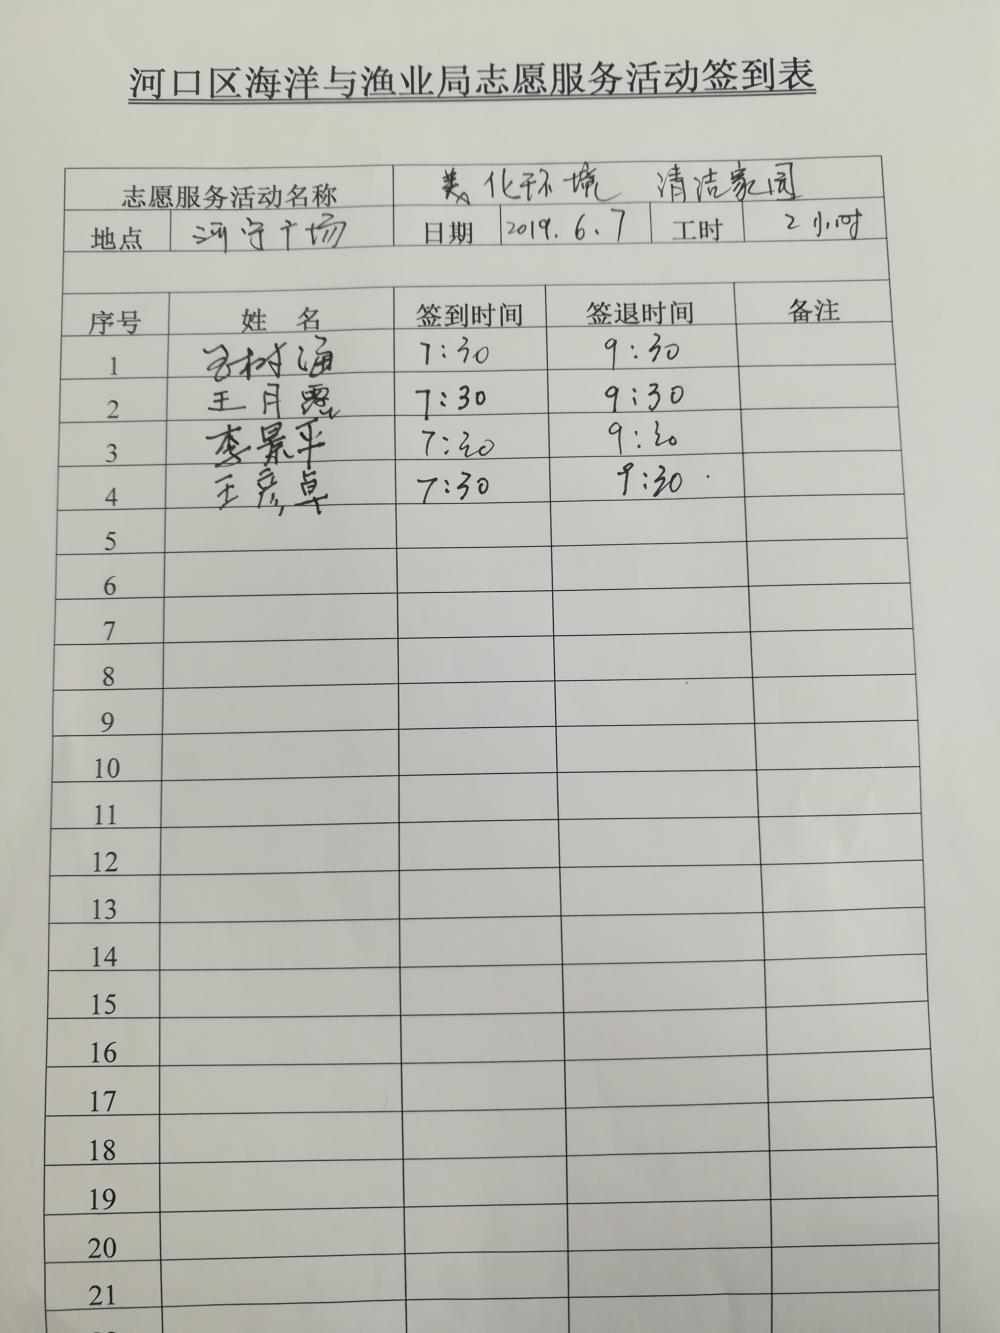 河口区海洋与渔业局志愿服务活动签到表
志愿服务活动名称 美化环境 清洁家园
地点 河宁广场 日期 2019.6.7 工时 2小时
序号 姓名 签到时间 签退时间 备注
1 树海 7:30 9:30
2 王月 7:30 9:30
3 李景平 7:30 9:30
4 王彦卓 7:30 9:30
5
6
7
8
9
10
11
12
13
14
15
16
17
18
19
20
21